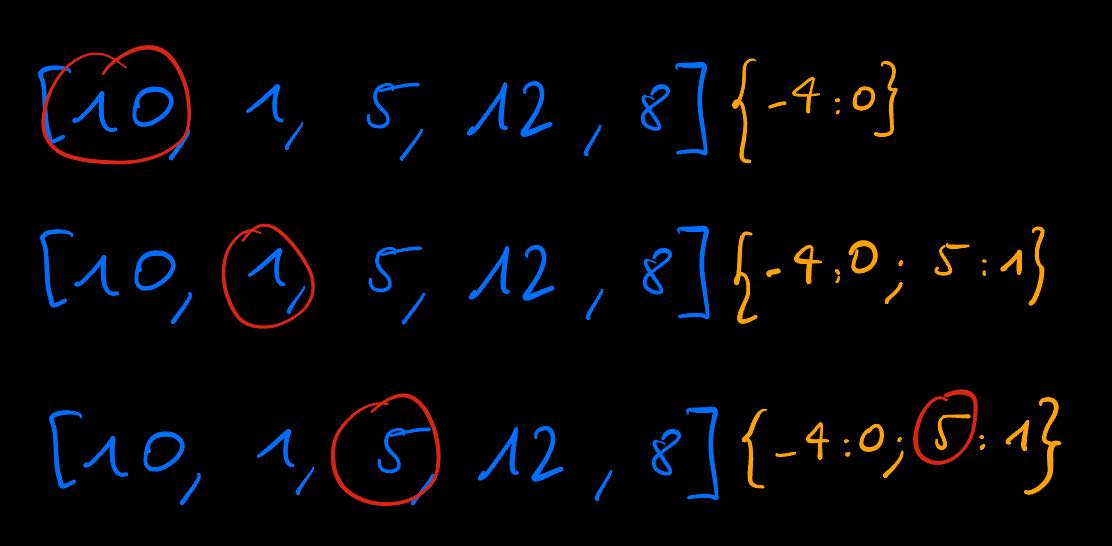 [10, 1, 5, 12, 8] {-4:0}
[10, 1, 5, 12, 8] {-4:0; 5:1}
[10, 1, 5, 12, 8] {-4:0; 5:1}